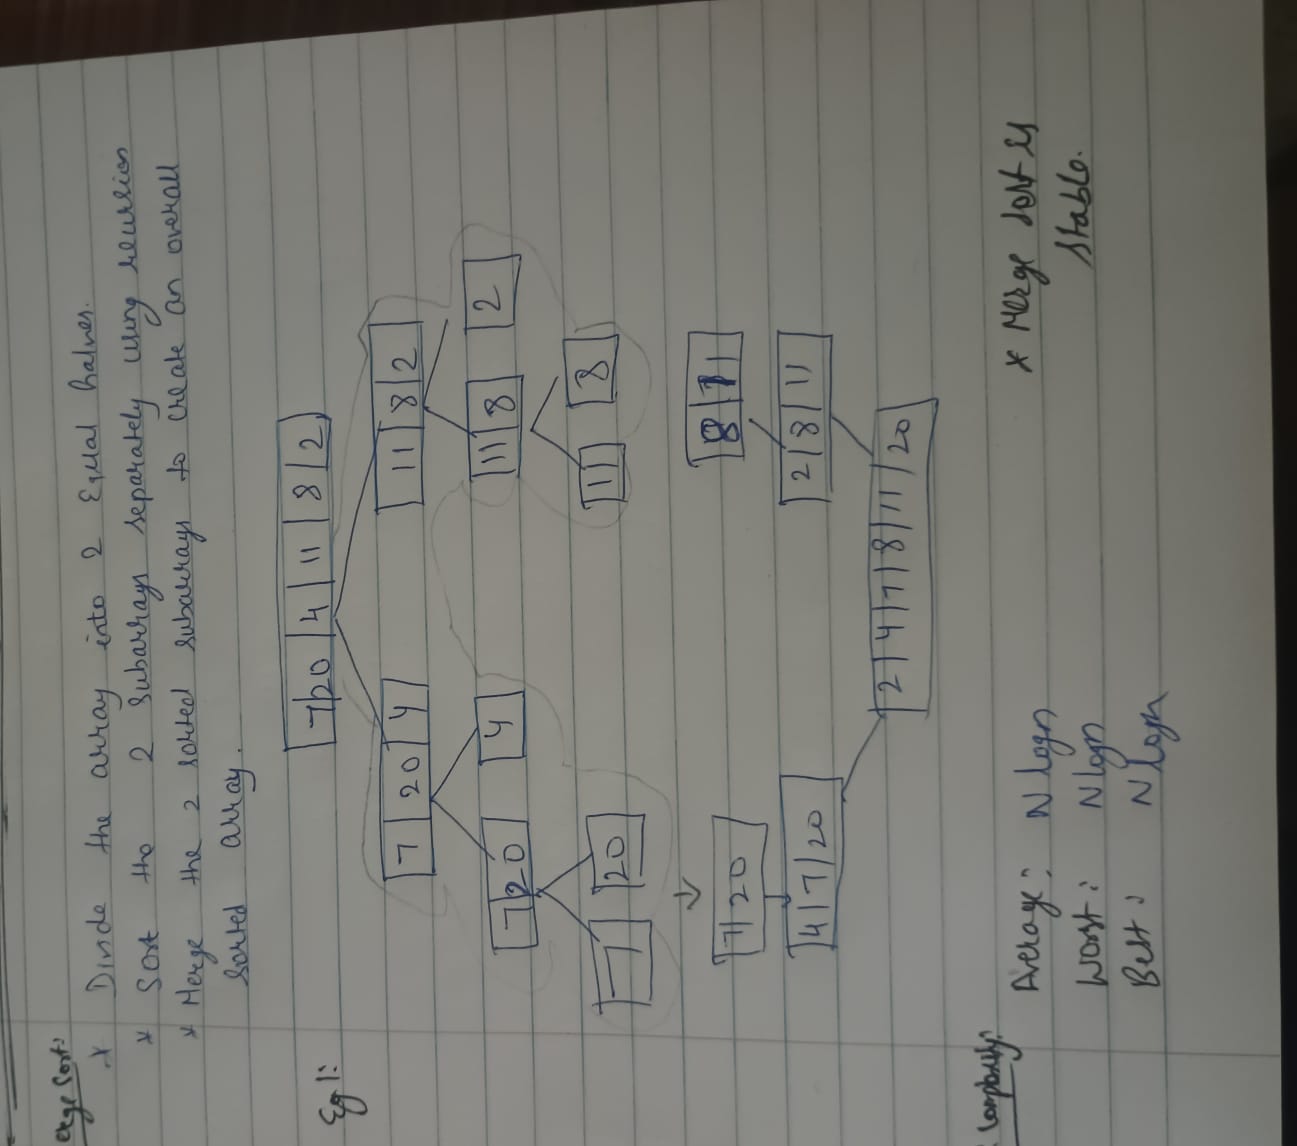 erge Sort:
* Divide the array into 2 Equal halves.
* Sort the 2 subarrays separately using recursion
* Merge the 2 sorted subarrays to create an overall
sorted array.
Eg 1:
7 20 4 11 8 2
7 20 4 11 8 2
7 20 4 11 8 2
7 20 11 8
7 20 8 11
4 7 20 2 8 11
2 4 7 8 11 20
Complexity:
Average: N logn * Merge sort is
Worst: N logn stable.
Best: N logn